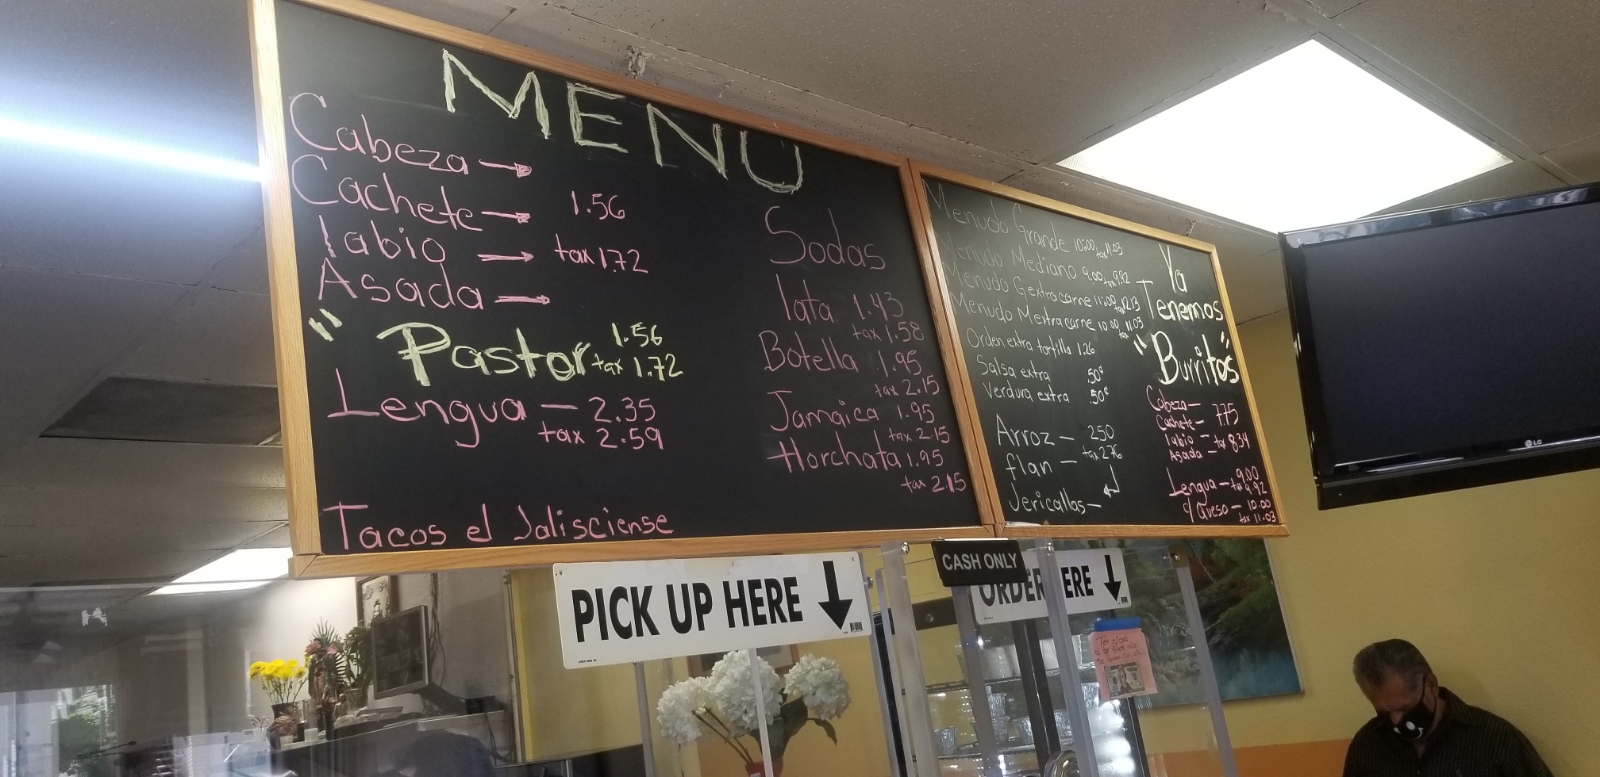 MENU
Cabeza →
Cachete → 1.56
labio → tax 1.72
Asada →
"Pastor 1.56
tax 1.72
Lengua — 2.35
tax 2.59
Tacos el Jalisciense
Sodas
lata 1.43
tax 1.58
Botella 1.95
tax 2.15
Jamaica 1.95
tax 2.15
Horchata 1.95
tax 2.15
Menudo Grande 10.00 tax 11.03
Menudo Mediano 9.00 tax 9.92
Menudo G extra carne 11.00 tax 12.13
Menudo M extra carne 10.00 tax 11.03
Orden extra tortilla 1.26
Salsa extra .50¢
Verdura extra .50¢
Arroz — 2.50
flan — tax 2.76
Jericallas —
Ya
Tenemos
"Burritos"
Cabeza —
Cachete — 7.75
labio — tax 8.54
Asada —
Lengua — 9.00
tax 9.92
q/Queso — 10.00
tax 11.03
PICK UP HERE ↓
CASH ONLY
ORDER HERE ↓
LG